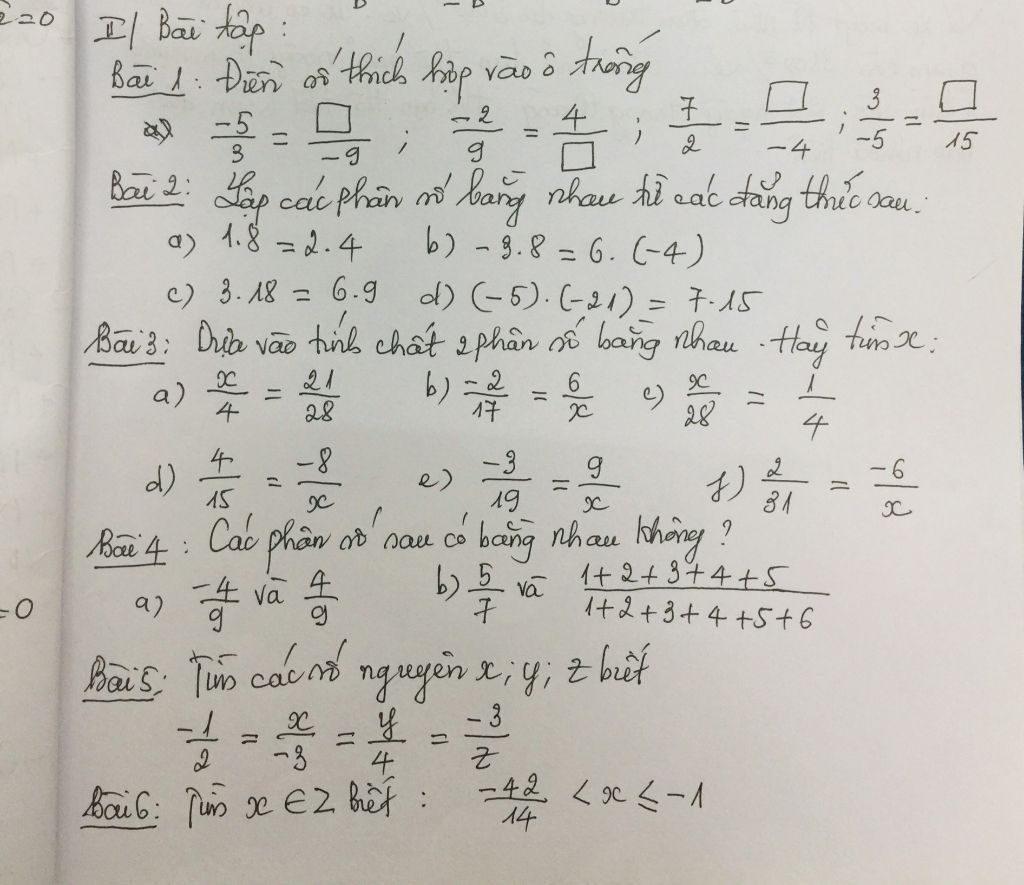 2=0
II/ Bài tập :
Bài 1 : Điền số thích hợp vào ô trống
a) -5/3 = □/-9 ; -2/9 = 4/□ ; 7/2 = □/-4 ; 3/-5 = □/15
Bài 2: Lập các phân số bằng nhau từ các đẳng thức sau:
a) 1.8 = 2.4 b) -3.8 = 6.(-4)
c) 3.18 = 6.9 d) (-5).(-21) = 7.15
Bài 3: Dựa vào tính chất 2 phân số bằng nhau. Hãy tìm x:
a) x/4 = 21/28 b) -2/17 = 6/x c) x/28 = 1/4
d) 4/15 = -8/x e) -3/19 = 9/x f) 2/31 = -6/x
Bài 4 : Các phân số sau có bằng nhau không ?
a) -4/9 và 4/9 b) 5/7 và 1+2+3+4+5/1+2+3+4+5+6
=0
Bài 5: Tìm các số nguyên x; y; z biết
-1/2 = x/-3 = y/4 = -3/z
Bài 6: Tìm x ∈ Z biết : -42/14 < x ≤ -1